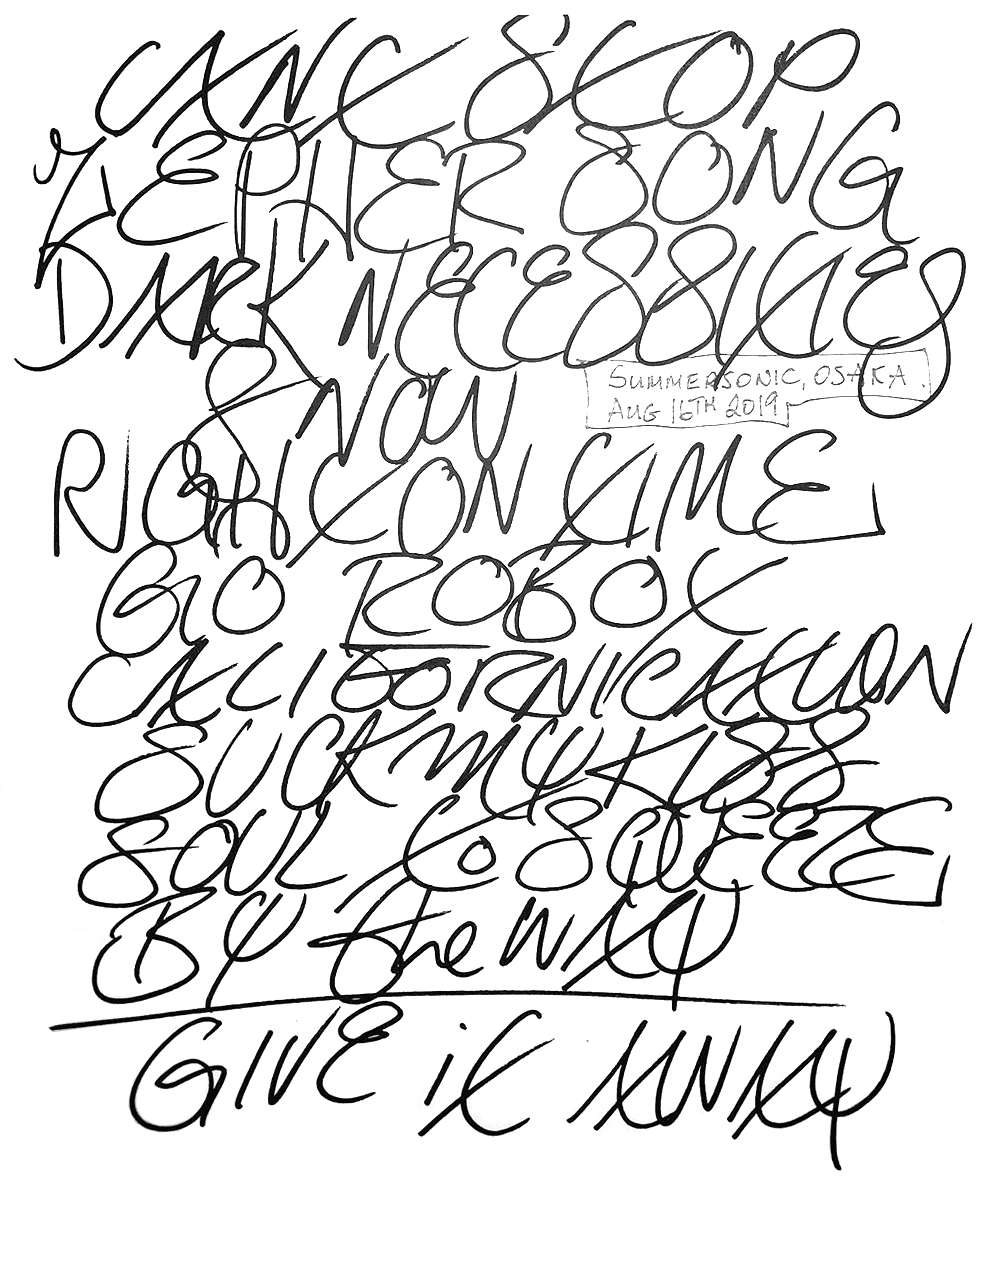 CAN'T STOP
ZEPHER SONG
DARK NECESSITIES
SUMMERSONIC, OSAKA.
AUG 16TH 2019
& NOW
RIGHT ON TIME
GO ROBOT
CALIFORNICATION
SUCK MY KISS
SOUL TO SQUEEZE
BY the WAY
GIVE iT AWAY